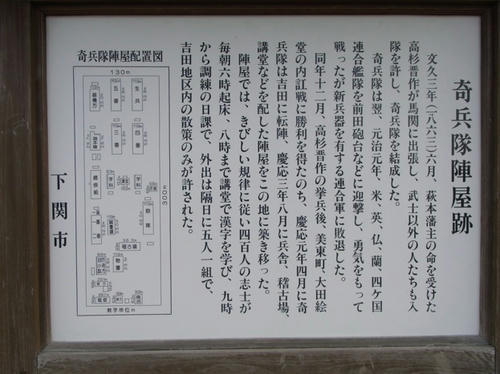 奇兵隊陣屋跡
文久三年(一八六三)六月、萩本藩主の命を受けた
高杉晋作が馬関に出張し、武士以外の人たちも入
隊を許し、奇兵隊を結成した。
奇兵隊は翌、元治元年、米、英、仏、蘭、四ケ国
連合艦隊を前田砲台などに迎撃し、勇気をもって
戦ったが新兵器を有する連合軍に敗退した。
同年十二月、高杉晋作の挙兵後、美東町、大田絵
堂の内訌戦に勝利を得たのち、慶応元年四月に奇
兵隊は吉田に転陣、慶応三年八月に兵舎、稽古場、
講堂などを配した陣屋をこの地に築き移った。
陣屋では、きびしい規律に従い四百人の志士が
毎朝六時起床、八時まで講堂で漢字を学び、九時
から調練の日課で、外出は隔日に五人一組で、
吉田地区内の散策のみが許された。
下関市
奇兵隊陣屋配置図
130m
200m
数字単位m